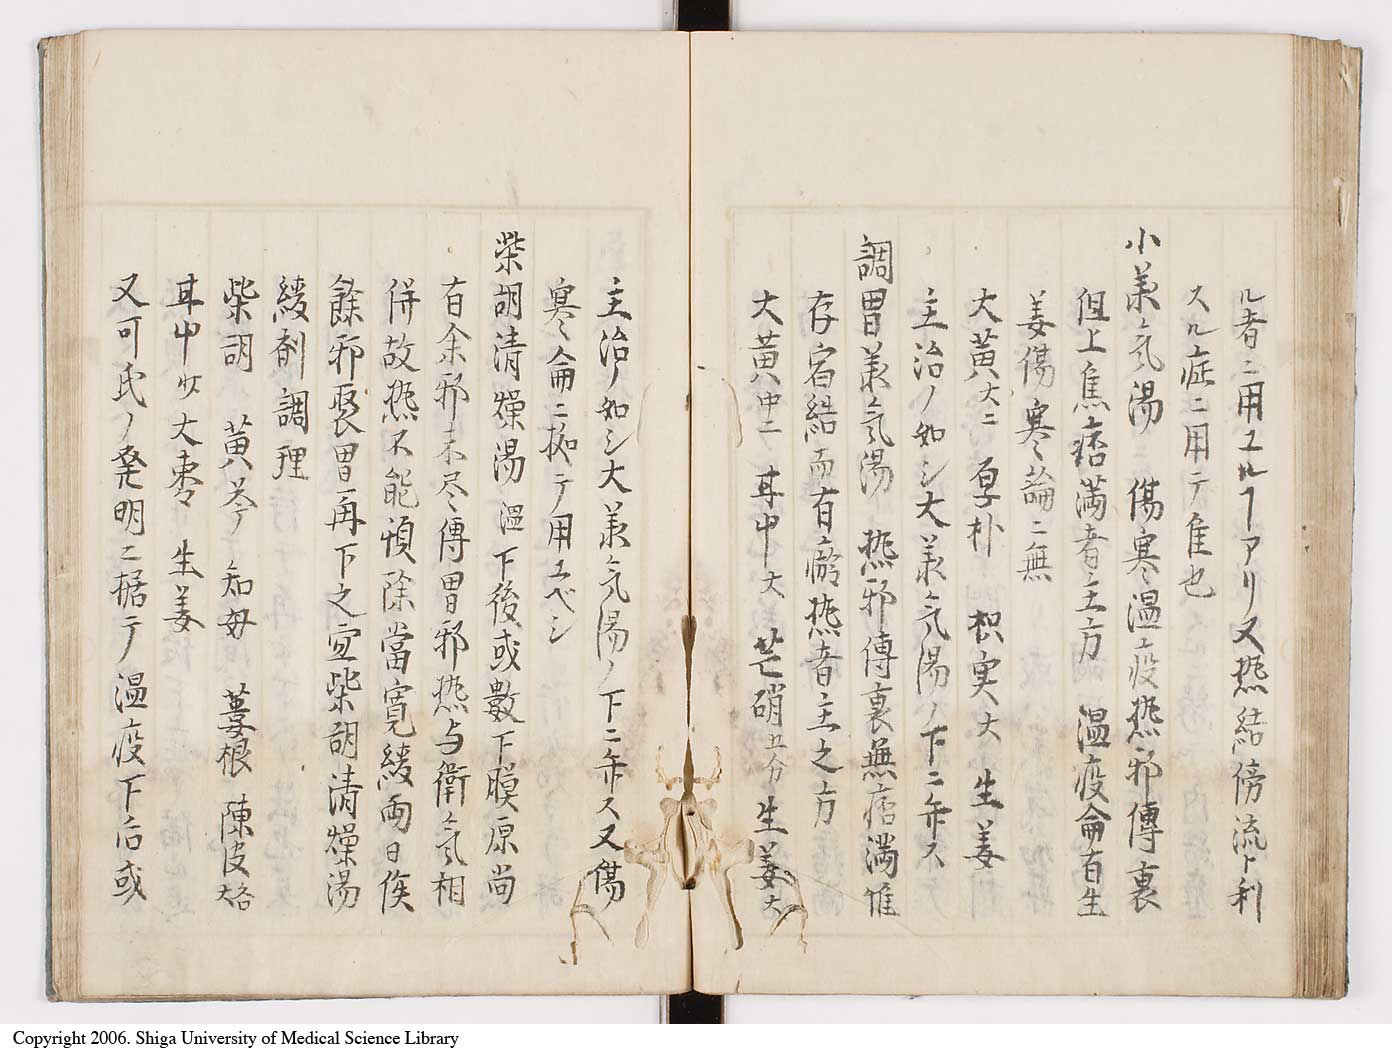 ル者ニ用ユルヿアリ又热結傍流ト利
スル症ニ用テ隹也
小美氣湯 傷寒温疫热邪傳裏
但上焦痞満者主方 温疫侖有生
姜傷寒論ニ無
大黄大ニ 厚朴 枳実大 生姜
主治ノ如シ大美氣湯ノ下ニ弁ス
調胃美氣湯 热邪傳裏無痞満惟
存宿結而有瘀热者主之方
大黄中ニ 耳中大 芒硝五分 生姜大
主治ノ如シ大美氣湯ノ下ニ弁ス又傷
寒侖ニ拠テ用ユベシ
柴胡清燥湯 温下後或數下膜原尚
有余邪未尽傳胃邪热与衛氣相
併故热不能頓除當寛緩両日俟
餘邪聚胃再下之宜柴胡清燥湯
緩剤調理
柴胡 黄芩 知母 姜根 陳皮各
耳中少 大棗 生姜
又可氏ノ発明ニ据テ温疫下后或
Copyright 2006. Shiga University of Medical Science Library